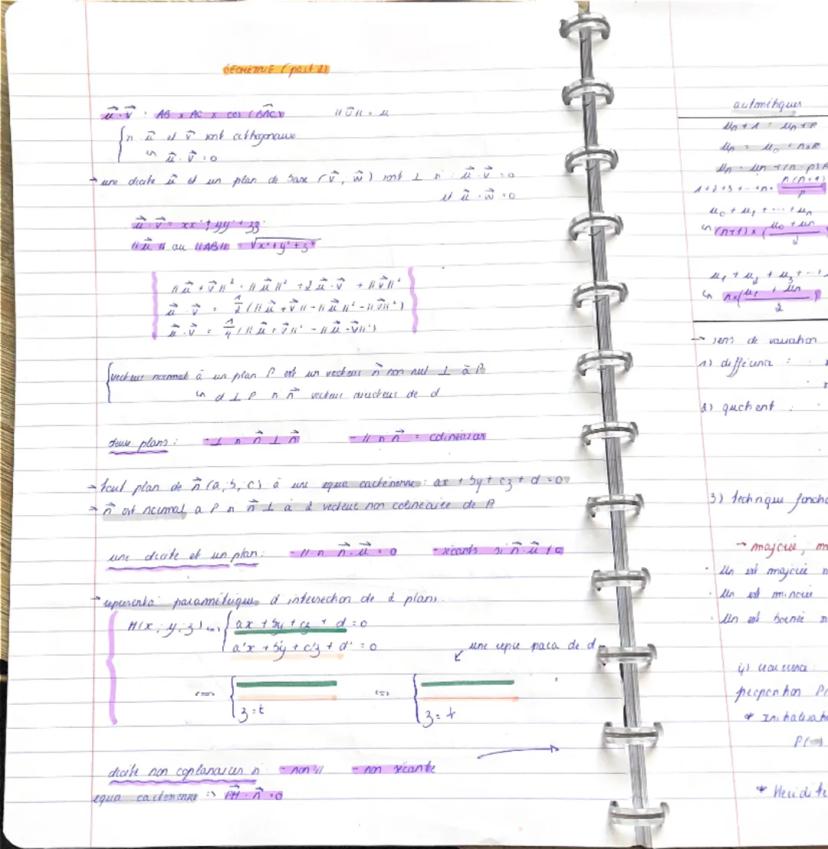 GEOMETRIE (part 2)
u⃗ · v⃗ = AB x AC x cos (BAC)
u⃗ et v⃗ sont orthogonaux
u⃗ · v⃗ = 0
→ une droite u⃗ et un plan de base (v⃗, w⃗) sont ⊥ si u⃗ · v⃗ = 0
et u⃗ · w⃗ = 0
u⃗ · v⃗ = xx' + yy' + zz'
||u⃗|| ou ||AB|| = √x² + y² + z²
||u⃗ + v⃗||² = ||u⃗||² + 2 u⃗ · v⃗ + ||v⃗||²
u⃗ · v⃗ = 1/2 (||u⃗ + v⃗||² - ||u⃗||² - ||v⃗||²)
u⃗ · v⃗ = 1/4 (||u⃗ + v⃗||² - ||u⃗ - v⃗||²)
vecteur normal à un plan P est un vecteur n⃗ non nul ⊥ à P
d ⊥ P si n⃗ vecteur directeur de d
deux plans : - ⊥ si n⃗ ⊥ n⃗ - // si n⃗ = colinéaires
→ tout plan de n⃗ (a, b, c) a une equa cartésienne : ax + by + cz + d = 0
→ n⃗ est normal à P si n⃗ ⊥ à 2 vecteur non colinéaire de P
une droite et un plan : - // si n⃗ · u⃗ = 0 - sécants si n⃗ · u⃗ ≠ 0
→ représenta paramétrique d intersection de 2 plans
M(x, y, z) ⟺ ax + by + cz + d = 0
a'x + b'y + c'z + d' = 0
une repré para de d
z = t z = t
droite non coplanaires si - non // - non sécante
equa cartésienne => PM · n⃗ = 0
arithmétiques
Un + 1 = Un + r
Un = U0 + n x r
Un = Um + (n - p)
1 + 2 + 3 + ... + n = n(n+1)
U0 + U1 + ... + Un
(n+1) x (U0 + Un
2
U1 + U2 + U3 + ...
n x (U1 + Un)
2
→ sens de variation
1) différence :
2) quotient :
3) technique foncti
→ majorée, m
· Un est majorée
· Un est minorée
· Un est bornée
4) récurrence
proposition P(
* Initialisat
P(
* Hérédité